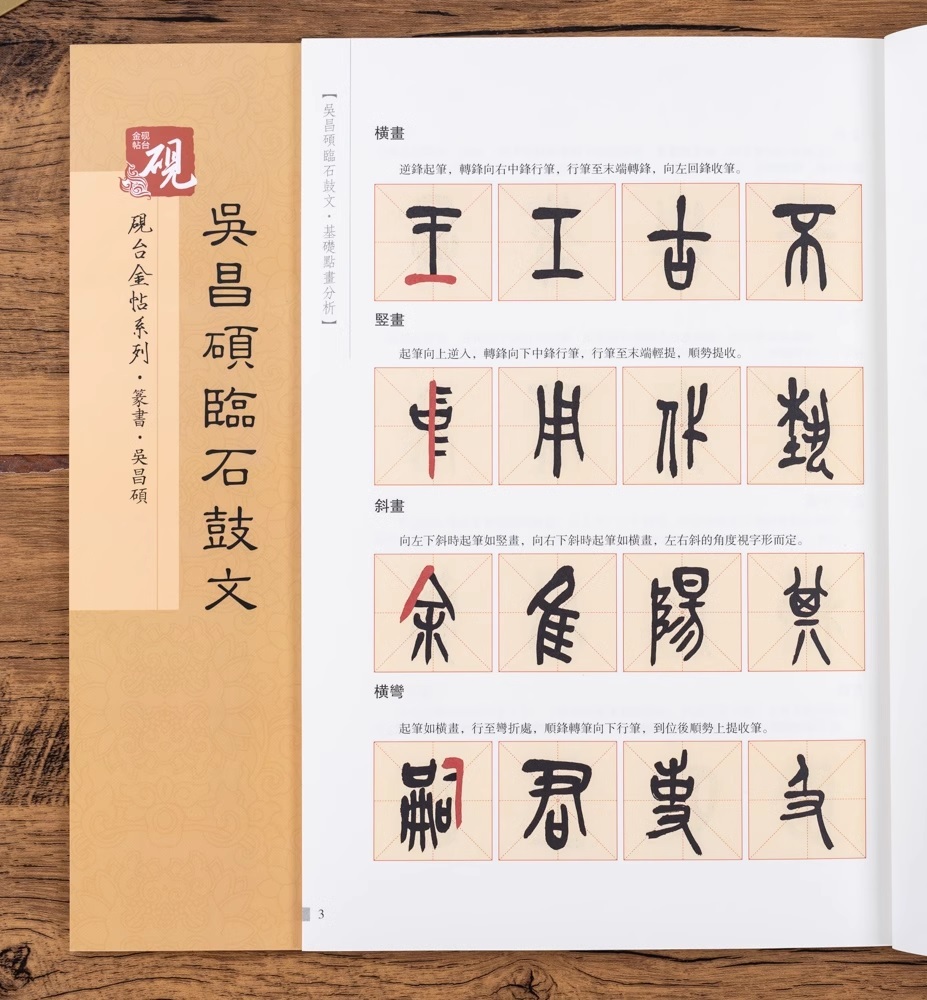 金帖
砚台
硯
硯台金帖系列·篆書·吳昌碩
吳昌碩臨石鼓文
【吳昌碩臨石鼓文·基礎點畫分析】
橫畫
逆鋒起筆，轉鋒向右中鋒行筆，行筆至末端轉鋒，向左回鋒收筆。
王 工 古 不
竪畫
起筆向上逆入，轉鋒向下中鋒行筆，行筆至末端輕提，順勢提收。
用 作
斜畫
向左下斜時起筆如竪畫，向右下斜時起筆如橫畫，左右斜的角度視字形而定。
余 隹 陽 其
橫彎
起筆如橫畫，行至彎折處，順鋒轉筆向下行筆，到位後順勢上提收筆。
嗣 君
3